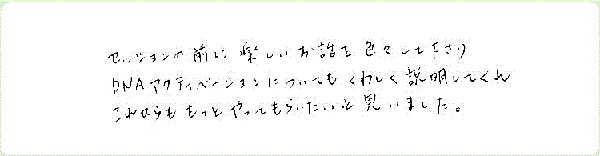 セッションの前に楽しいお話を色々して下さり
DNAアクティベーションについてもくわしく説明してくれ
これからももっとやってもらいたいと思いました。